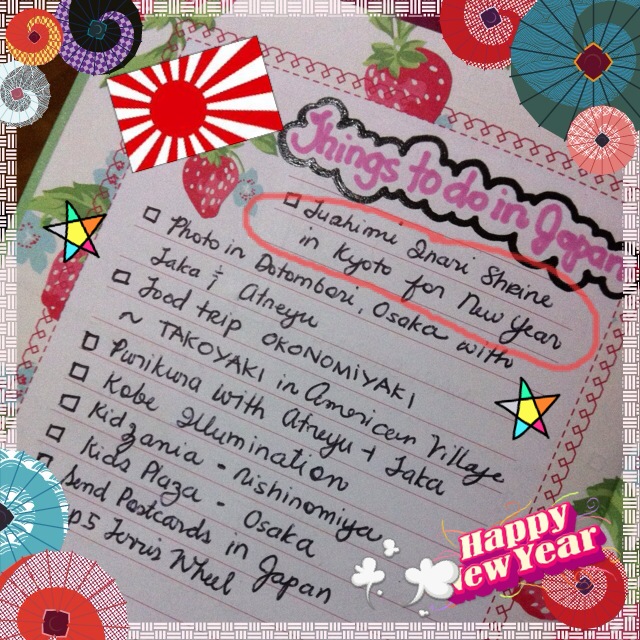 Things to do in Japan
□ Fushimi Inari Shrine
in Kyoto for New Year
□ Photo in Dotombori, Osaka with
Jaka & Atreyu
□ Food trip OKONOMIYAKI
~ TAKOYAKI in American Village
□ Purikura with Atreyu + Jaka
□ Kobe Illumination
□ Kidzania - Nishinomiya
□ Kids Plaza - Osaka
□ Send Postcards in Japan
Ferris Wheel
Happy
New Year